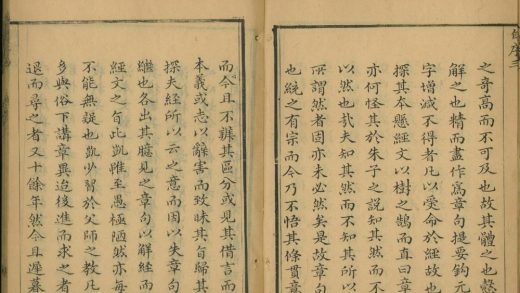 之奇高而不可及也故其體之也慤
解之也精而盡作寫章句提要鈎元
字增減不得者凡以受命於經故也
探其本懸經文以樹之鵠而直曰章
亦何怪其於朱子之說知其然而不
以然也哉夫知其然而不知其所以
所謂然者固亦未必然矣是故章句
也統之有宗而今乃不悟其條貫章
而今且不辨其區分或見其借言而
本義或忘以辭害而致昧其旨歸其
探夫經所以云之意而因以失章句
繼也各出其臆見之章句以解經而
經文之旨此凱惟至愚極陋然亦每
不能無疑也凱少習於父師之教凡
多與俗下講章異迨後進而求之者
退而尋之者又十餘年然今且遲暮